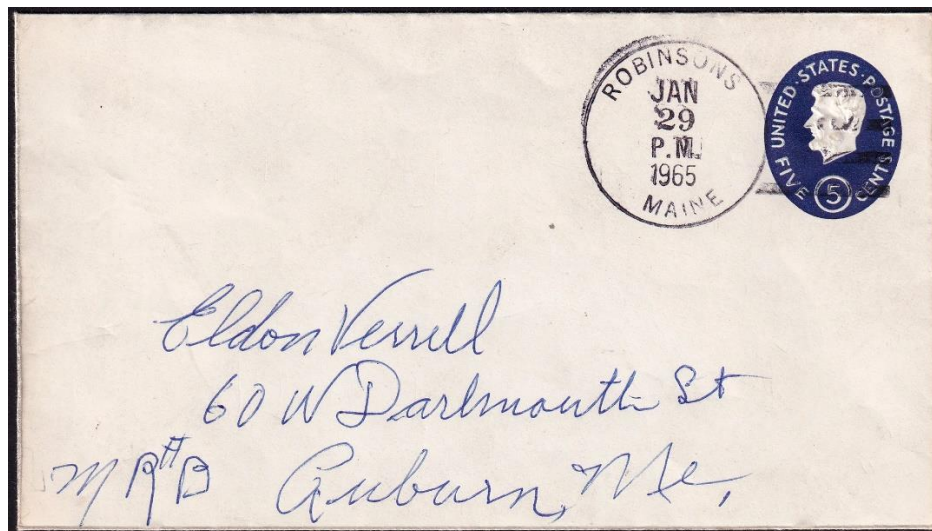 ROBINSONS
JAN
29
P.M.
1965
MAINE
UNITED STATES POSTAGE
FIVE CENTS
5
Eldon Verrill
60 W Dartmouth St
Auburn, Me,